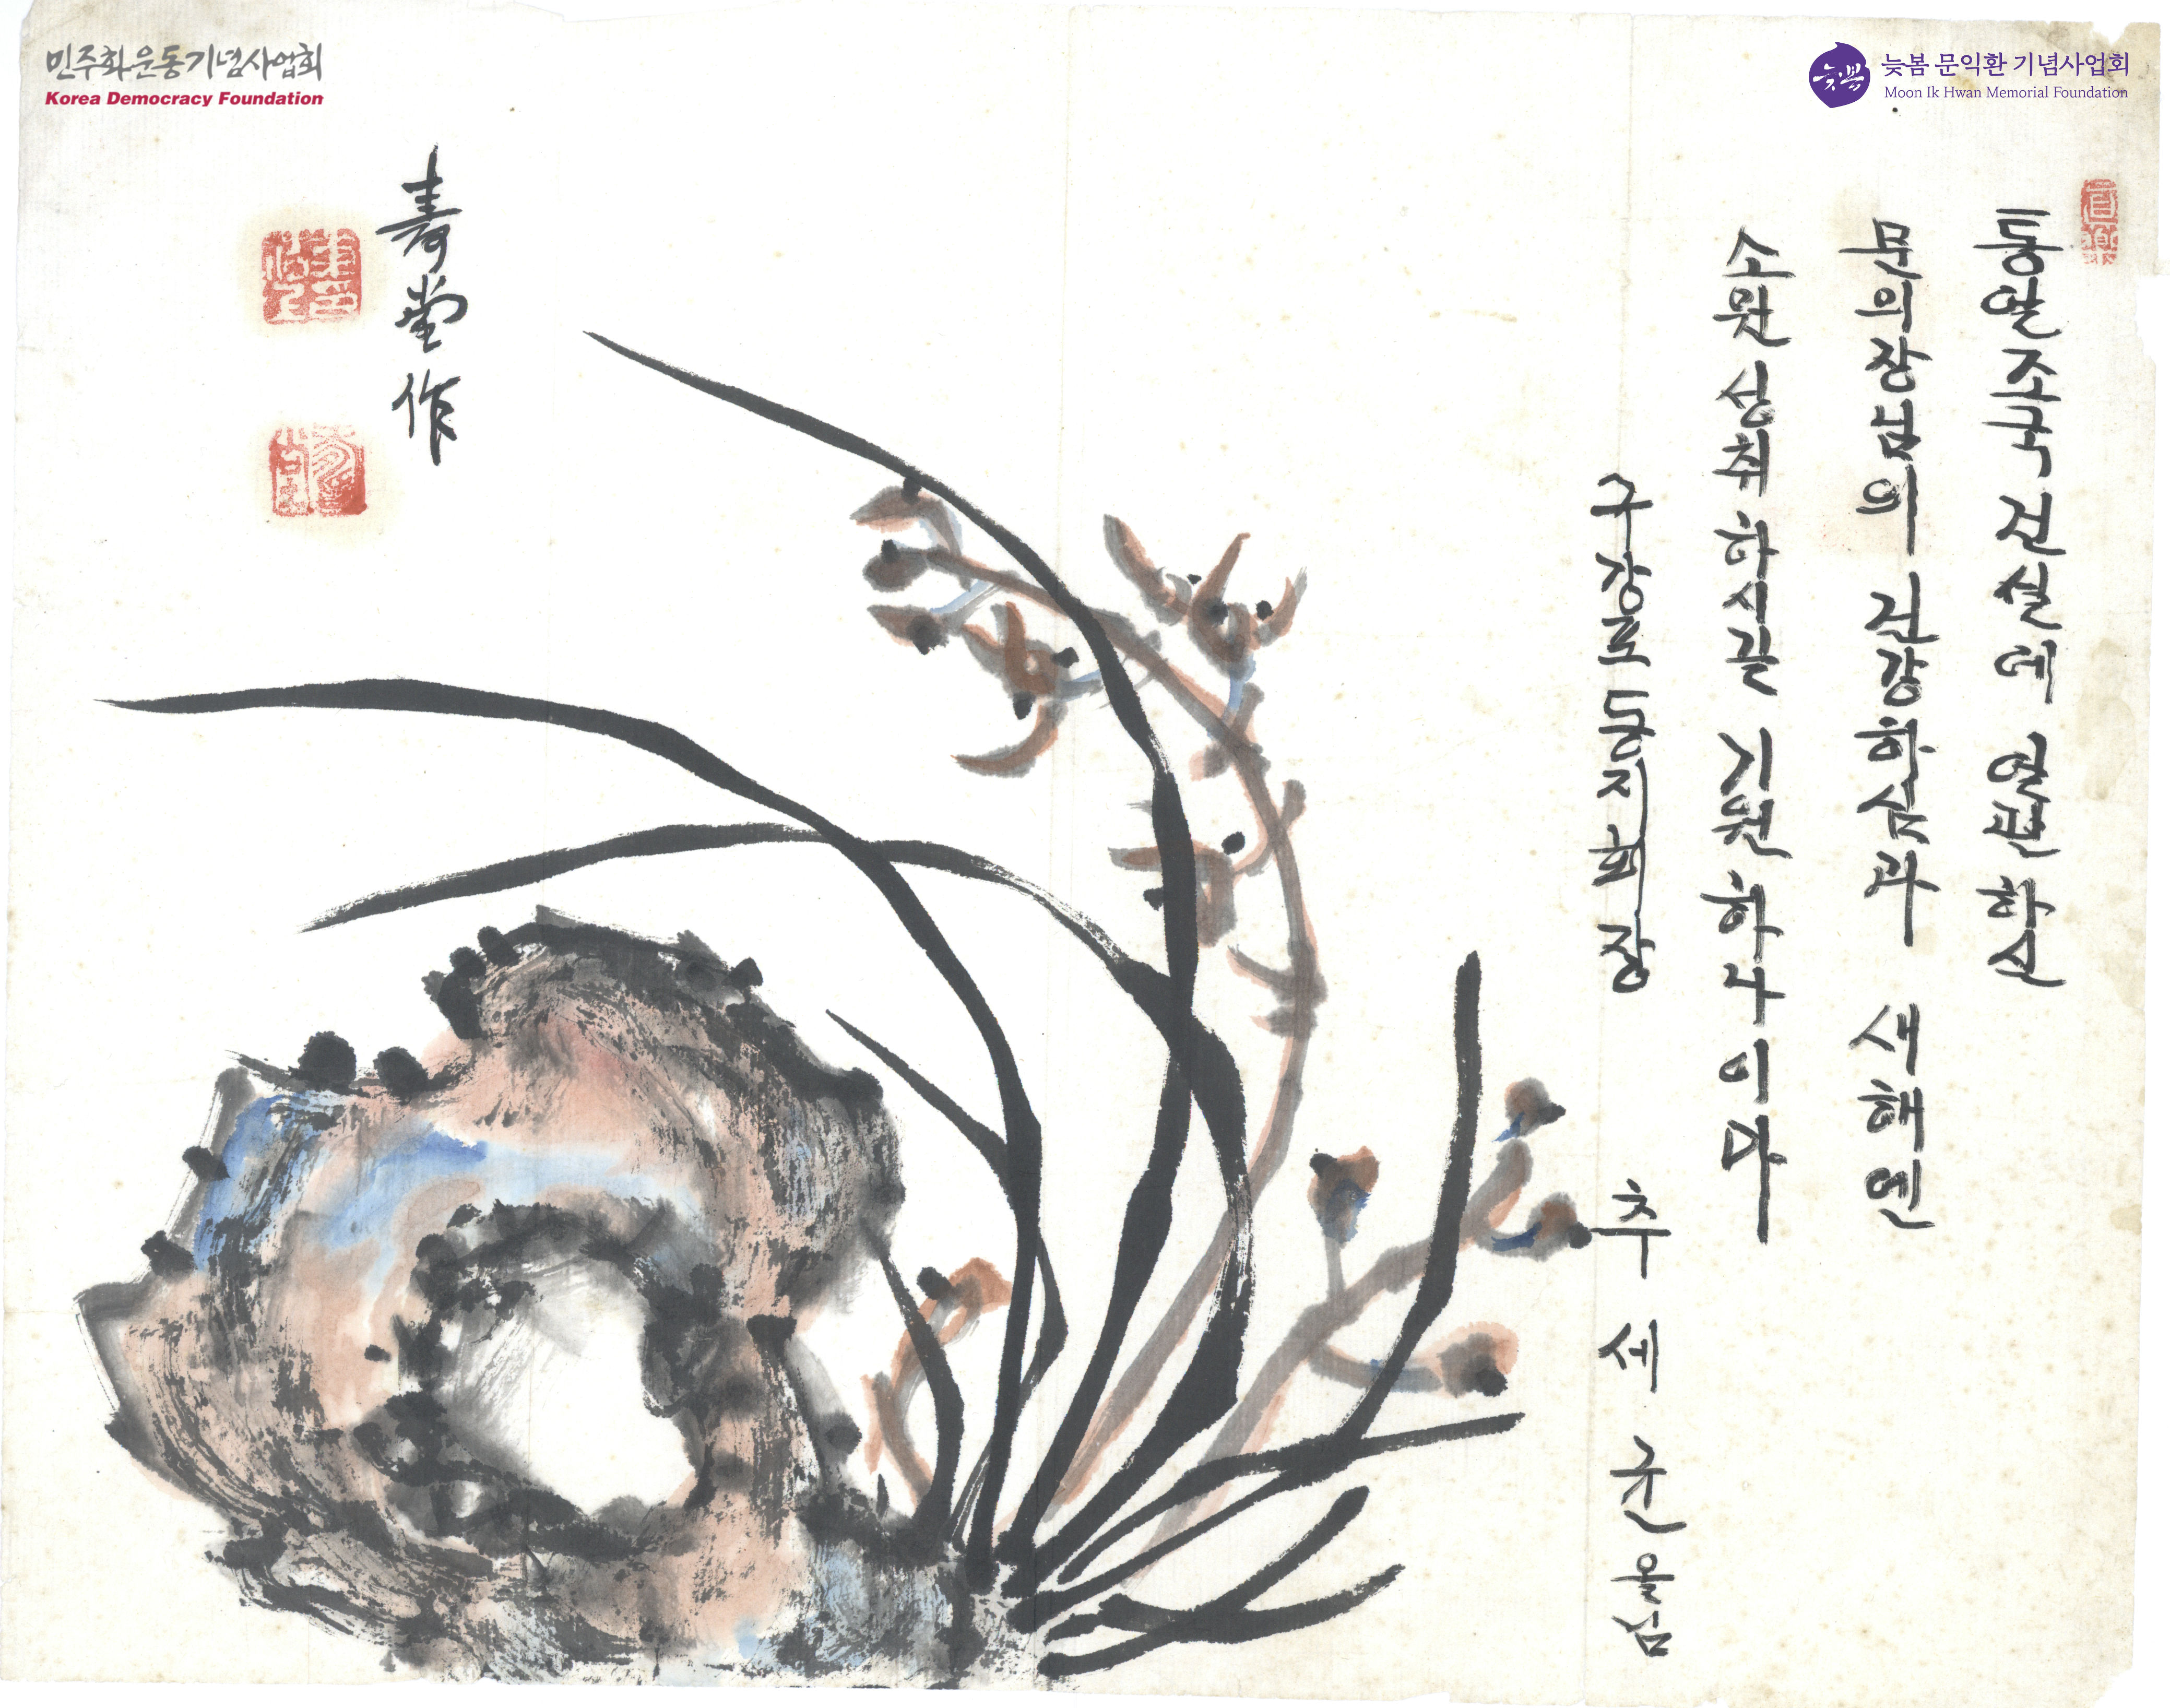 민주화운동기념사업회
Korea Democracy Foundation
늦봄 문익환 기념사업회
Moon Ik Hwan Memorial Foundation
늦봄
통일조국 건설에 열편하신
문의장님의 건강하심과 새해엔
소원성취 하시길 기원하나이다
구강포동지회장 추세균 올님
壽堂作